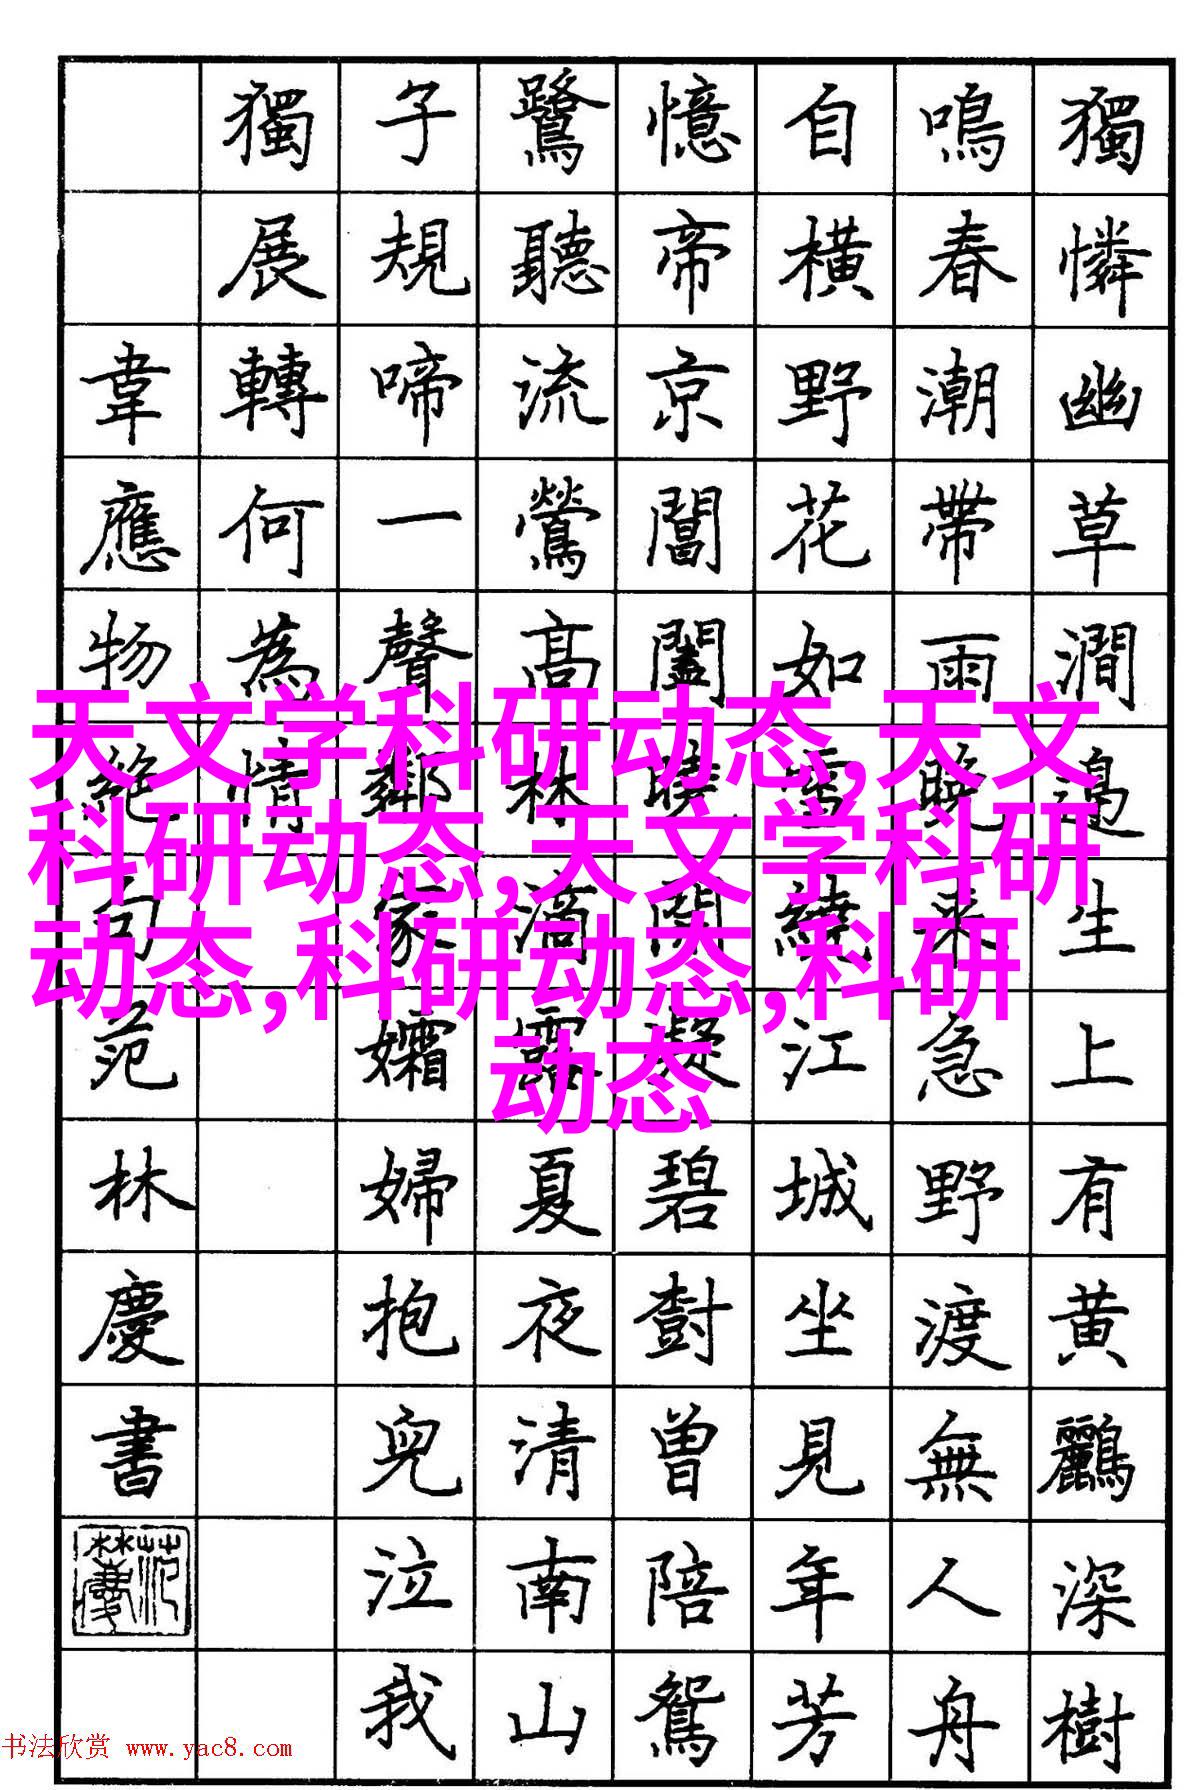 獨憐幽草澗邊生上有黄鸝深樹
鳴春潮帶雨晚來急野渡無人舟
自橫野花如雪繞江城坐見年芳
憶帝京閶闔曉開凝碧樹曾陪鴛
鷺聽流鶯高林滴露夏夜清南山
子規啼一聲鄰家孀婦抱兒泣我
獨展轉何為情
韋應物絕句范林慶書
天文学科研动态,天文
科研动态,天文学科研
动态,科研动态,科研
动态
书法欣赏 www.yac8.com